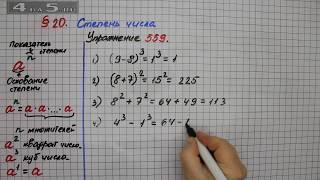 4 на 5.ru
§ 20. Степень числа
Упражнение 559.
Показатель степени
aⁿ
Основание степени
aⁿ = a·a·...·a
n множителей
a² квадрат числа
a³ куб числа
a¹ = a
1) (9-8)³ = 1³ = 1
2) (8+7)² = 15² = 225
3) 8² + 7² = 64 + 49 = 113
4) 4³ - 1³ = 64 - 1